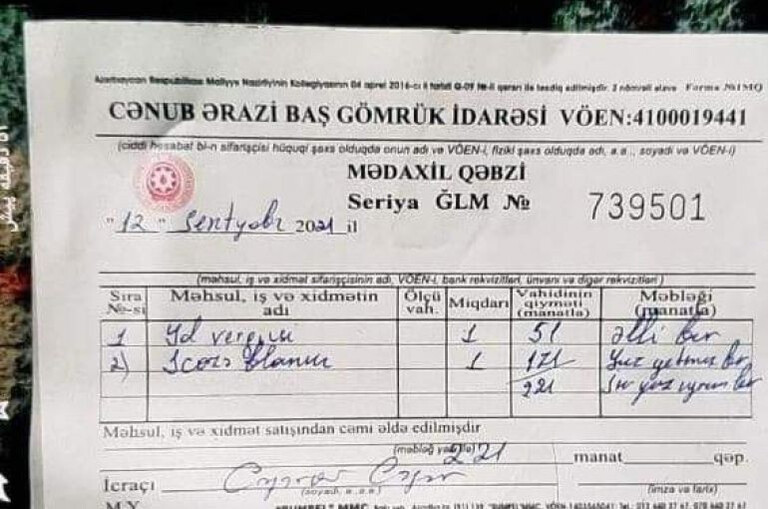 Azərbaycan Respublikası Maliyyə Nazirliyinin Kollegiyasının 04 aprel 2016-cı il tarixli Q-09 №-li qərarı ilə təsdiq edilmişdir. 2 nömrəli əlavə Forma №1MQ
CƏNUB ƏRAZİ BAŞ GÖMRÜK İDARƏSİ VÖEN:4100019441
(ciddi hesabat bl-n sifarişçisi hüquqi şəxs olduqda onun adı və VÖEN-i, fiziki şəxs olduqda adı, a.a., soyadı və VÖEN-i)
MƏDAXİL QƏBZİ
Seriya ĞLM № 739501
"12" Sentyabr 2021 il
(məhsul, iş və xidmət sifarişçisinin adı, VÖEN-i, bank rekvizitləri, ünvanı və digər rekvizitləri)
Sıra №-si Məhsul, iş və xidmətin adı Ölçü vah. Miqdarı Vahidinin qiyməti (manatla) Məbləği (manatla)
1 Yol vergisi 1 51 əlli bir
2) 1 171 Yüz yetmiş bir
221
Məhsul, iş və xidmət satışından cəmi əldə edilmişdir
221 manat qəp.
(məbləğ yazı ilə)
İcraçı
(soyadı, a.a.a.) (imza və tarix)
M.Y.